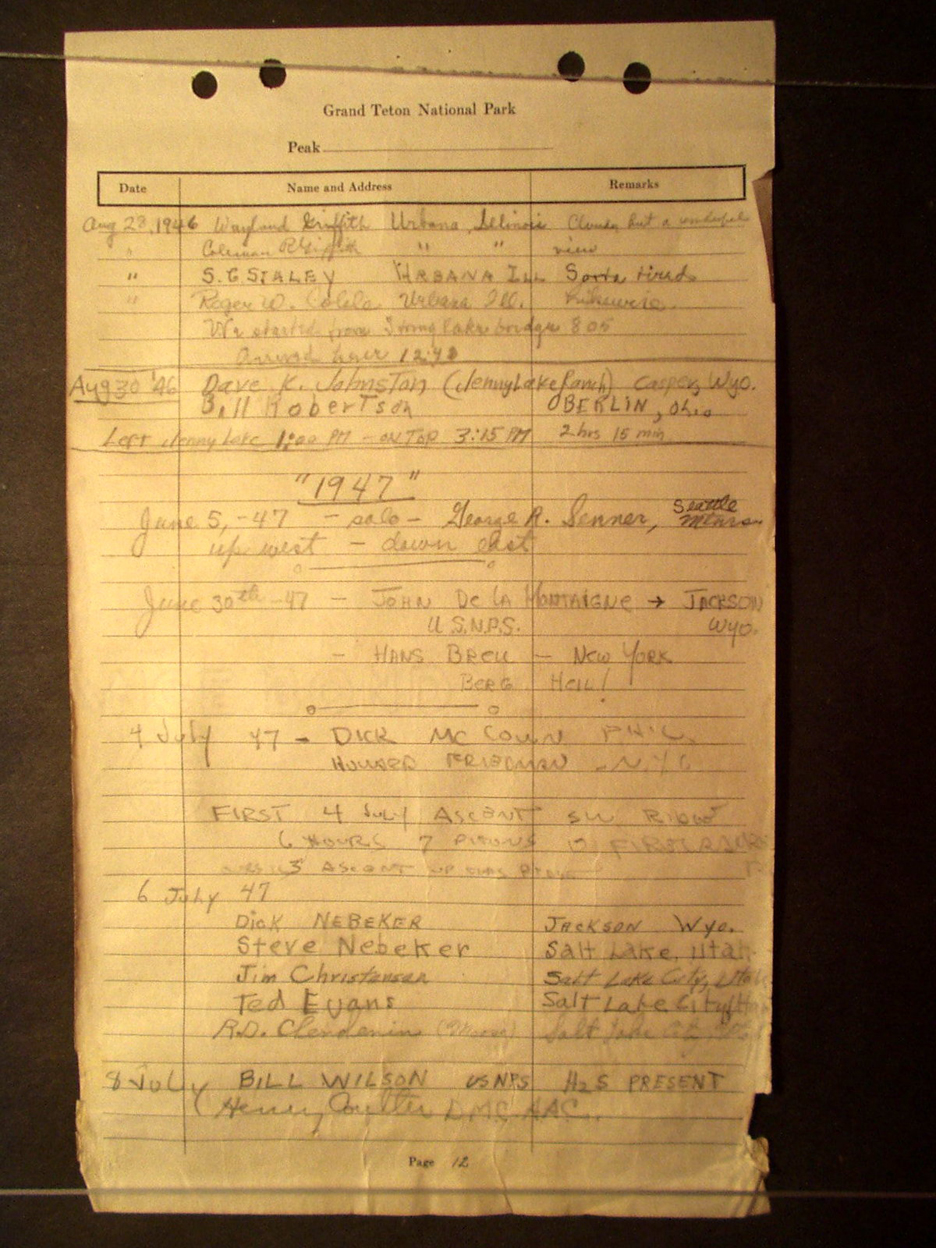 Grand Teton National Park
Peak
Date Name and Address Remarks
Aug 23, 1946 Wayland Griffith Urbana, Illinois Cloudy but a wonderful
" Coleman R Griffith " " view
" S.C. STALEY URBANA ILL Sorta tired
" Roger W. Urbana Ill. Likewise.
We started from String lake bridge 8 05
Arrived here 12:42
Aug 30 '46 Dave K. Johnston (Jenny Lake Ranch) Casper, Wyo.
Bill Robertson BERLIN, Ohio
Left Jenny Lake 1:00 PM - ON TOP 3:15 PM 2 hrs 15 min
"1947"
June 5, -47 - solo - George R. Senner, Seattle Mtnrs
up west - down east
June 30th -47 - JOHN DE LA MONTAIGNE → JACKSON
U.S.N.P.S. Wyo.
- HANS BREU - NEW YORK
BERG HEIL!
4 July 47 - DICK MC COWN PHIL.
HOWARD FRIEDMAN - N.Y.C
FIRST 4 JULY ASCENT SW RIDGE
6 HOURS 7 PITONS
ASCENT
6 July 47
DICK NEBEKER JACKSON Wyo.
Steve Nebeker Salt Lake, Utah
Jim Christensen Salt Lake City, Utah
Ted Evans Salt Lake City
R.D. Clendenin Salt Lake
8 July BILL WILSON USNPS H2S PRESENT
Henry Coulter D.M.C. A.A.C.
Page 12